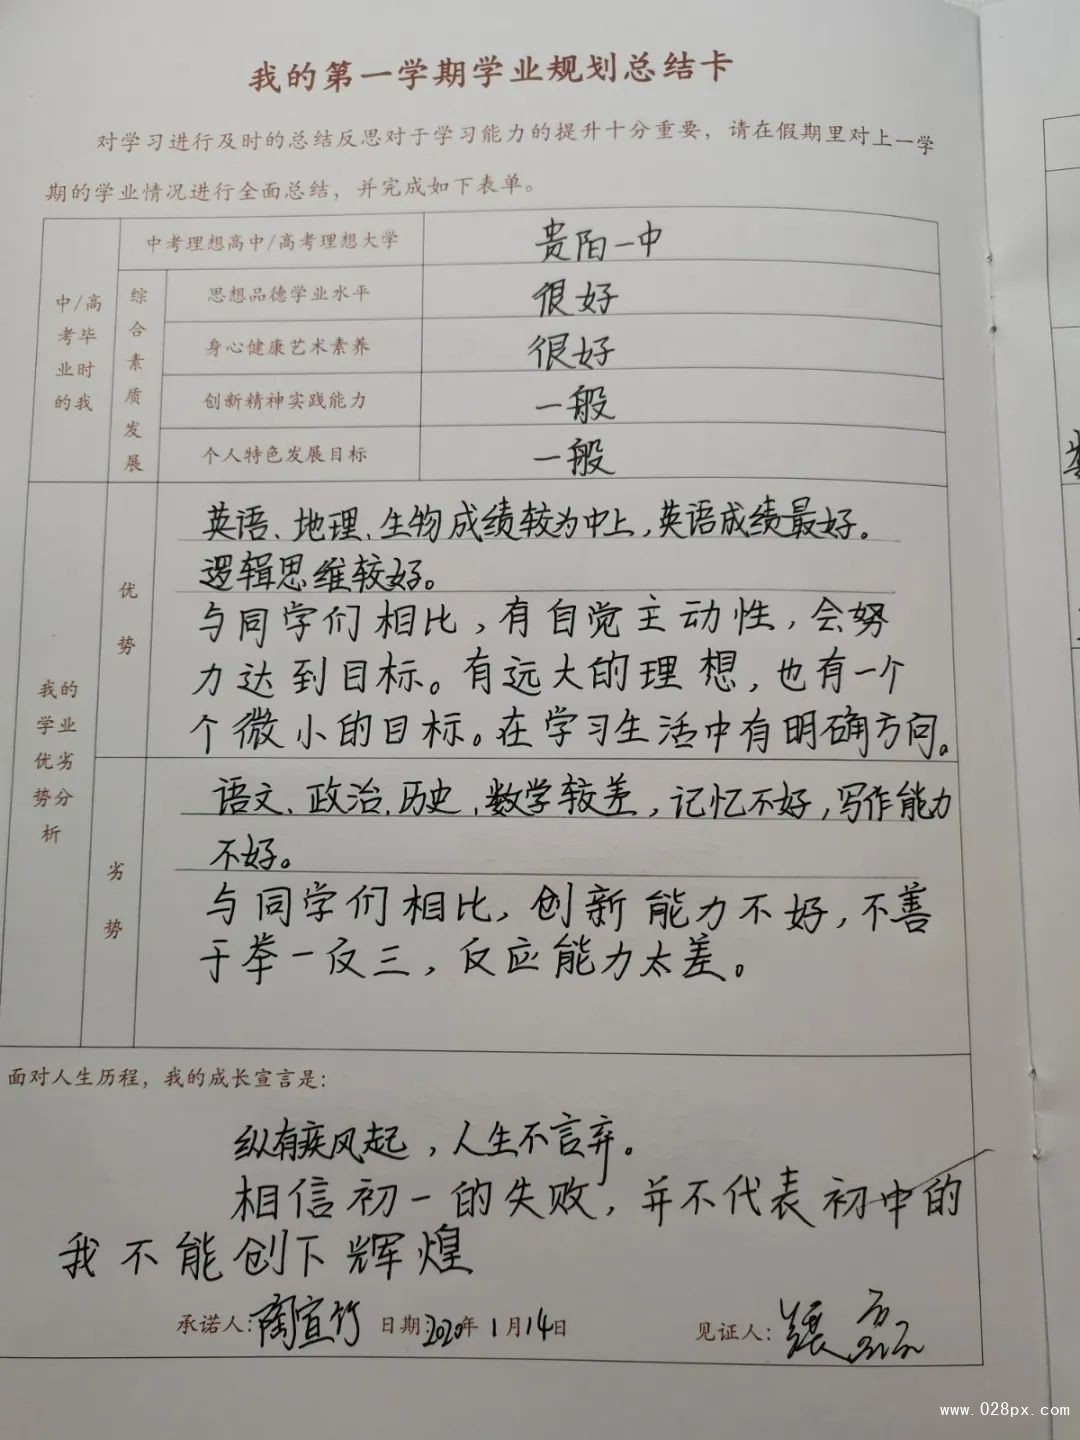 我的第一学期学业规划总结卡
对学习进行及时的总结反思对于学习能力的提升十分重要，请在假期里对上一学
期的学业情况进行全面总结，并完成如下表单。
中/高
考毕
业时
的我
中考理想高中/高考理想大学
贵阳一中
综
合
素
质
发
展
思想品德学业水平
很好
身心健康艺术素养
很好
创新精神实践能力
一般
个人特色发展目标
一般
我的
学业
优劣
势分
析
优
势
英语、地理、生物成绩较为中上，英语成绩最好。
逻辑思维较好。
与同学们相比，有自觉主动性，会努
力达到目标。有远大的理想，也有一个
个微小的目标。在学习生活中有明确方向。
劣
势
语文、政治、历史、数学较差，记忆不好，写作能力
不好。
与同学们相比，创新能力不好，不善
于举一反三，反应能力太差。
面对人生历程，我的成长宣言是：
纵有疾风起，人生不言弃。
相信初一的失败，并不代表初中的
我不能创下辉煌
承诺人：陶宣竹 日期：2020年1月14日 见证人：
www.028px.com